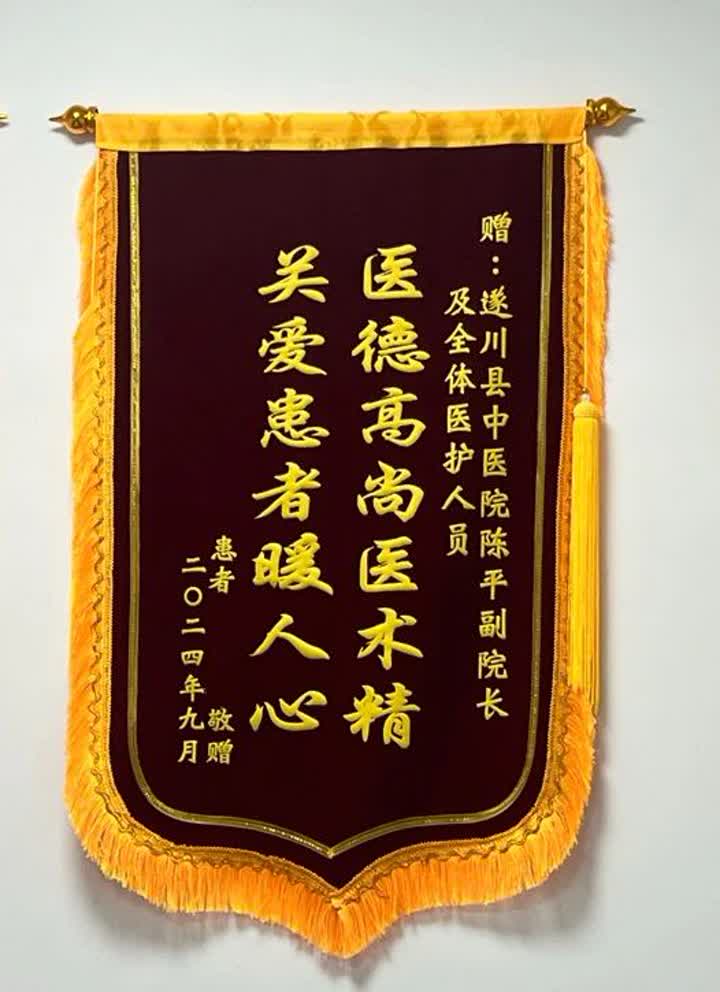 赠：遂川县中医院陈平副院长
及全体医护人员
医德高尚医术精
关爱患者暖人心
患者 敬赠
二〇二四年九月